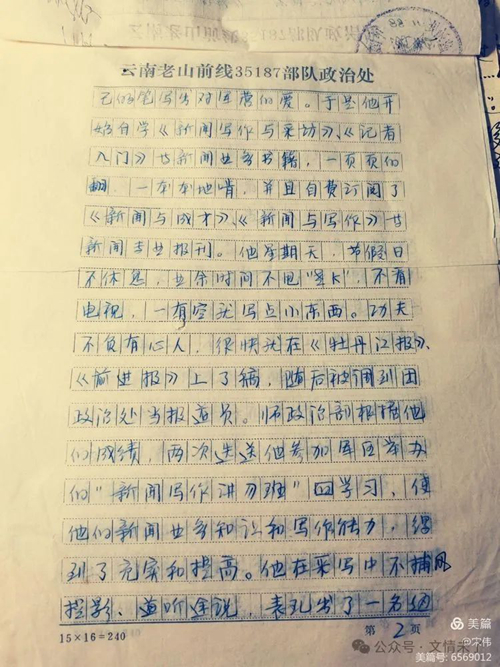 云南老山前线35187部队政治处
己的笔写出对军营的爱。于是他开
始自学《新闻写作与采访》、《记者
入门》廿新闻业务书籍，一页页的
翻，一本本地啃，并且自费订阅了
《新闻与成才》、《新闻与写作》廿
新闻专业报刊。他星期天，节假日
不休息，业余时间不甩"老K"，不看
电视，一有空就写点小东西。功夫
不负有心人，很快就在《牡丹江报》、
《前进报》上了稿，随后被调到团
政治处当报道员。师政治部根据他
们成绩，两次选送他参加军区举办
的"新闻写作讲习班"学习，使
他们新闻业务知识和写作能力，得
到了充实和提高。他在采写中不捕风
捉影、道听途说，表现出了一名
15×16=240
第2页
美篇
@宋伟
公众号·文情未了
美篇号: 6569012